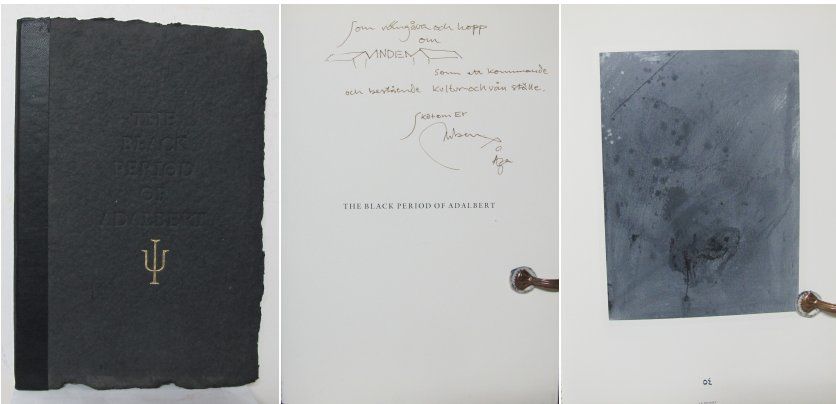 THE
BLACK
PERIOD
OF
ADALBERT
Ψ
Som vängåva och hopp
om
VINDEN
som ett kommande
och bestående kultur och vän ställe.
Sköten Er
THE BLACK PERIOD OF ADALBERT